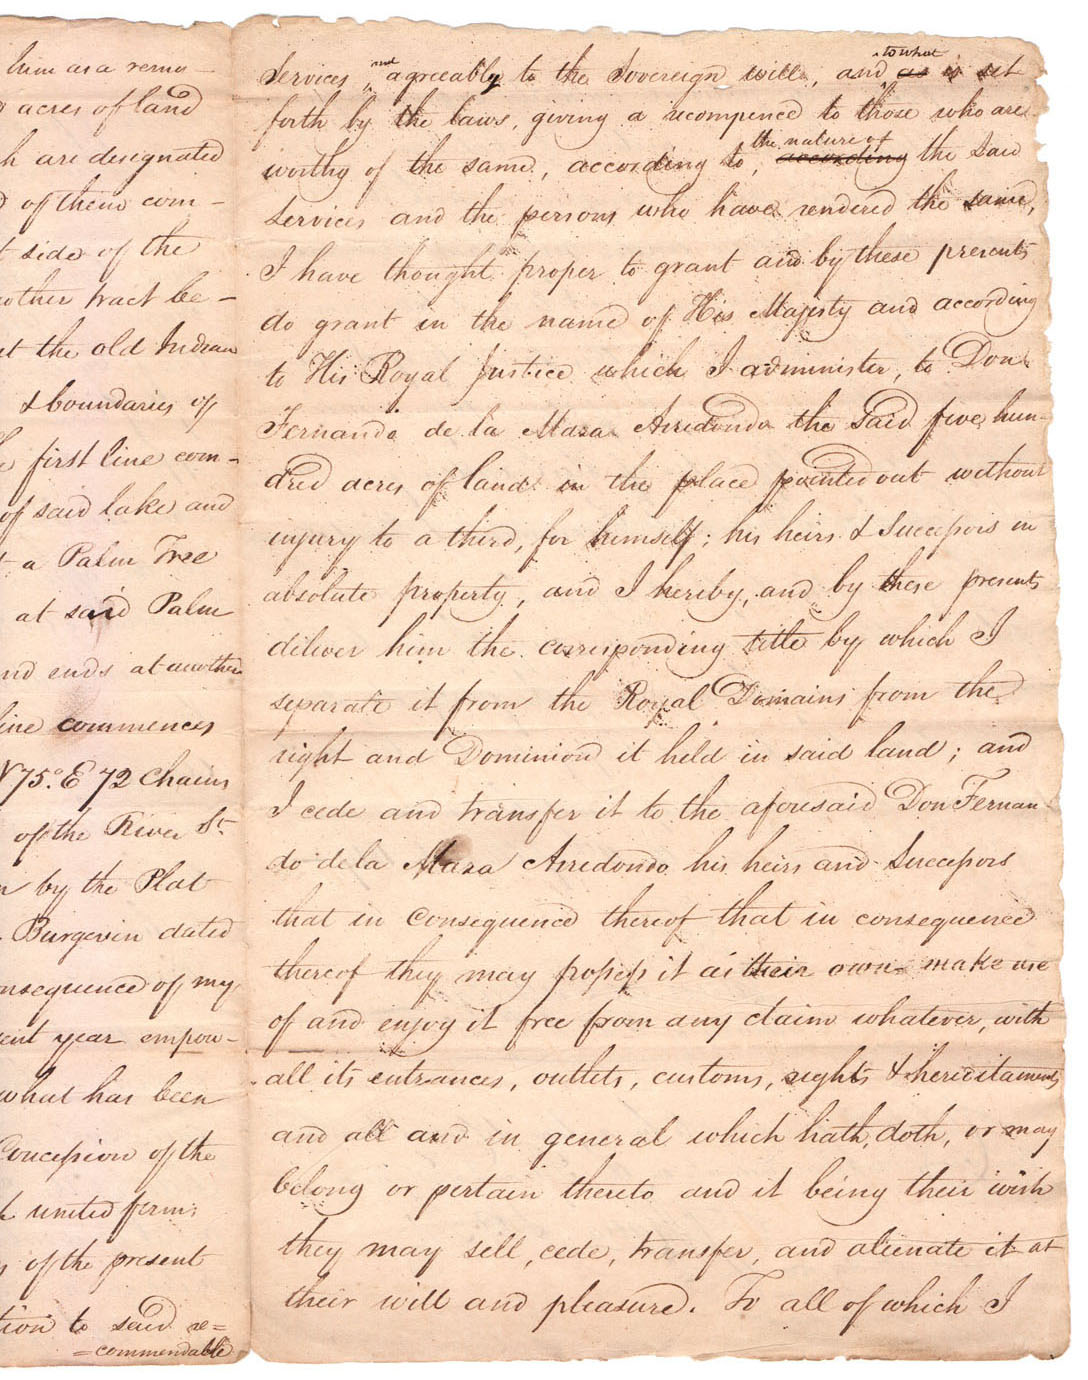 him as a remu-
acres of land
h are designated
of them com-
t side of the
other tract be-
t the old Indian
& boundaries of
first line com-
of said lake and
a Palm Tree
at said Palm
nd ends at another
line commences
N 75° E 72 Chains
of the River St.
by the Plat
Burgevin dated
nsequence of my
ent year empow-
what has been
Concession of the
united form;
of the present
tion to said re=
=commendable
Services, not agreeably to the Sovereign will, and to what as is set
forth by the laws, giving a recompence to those who are
worthy of the same, according to, the nature of according the said
services and the persons who have rendered the same,
I have thought proper to grant and by these presents
do grant in the name of His Majesty and according
to His Royal Justice which I administer, to Don
Fernando de la Maza Arredondo the said five hun-
dred acres of land in the place pointed out without
injury to a third, for himself; his heirs & Successors in
absolute property, and I hereby, and by these presents
deliver him the corresponding title by which I
separate it from the Royal Domains from the
right and Dominion it held in said land; and
I cede and transfer it to the aforesaid Don Fernan-
do de la Maza Arredondo his heirs and Successors
that in Consequence thereof that in consequence
thereof they may possess it as their own make use
of and enjoy it free from any claim whatever, with
all its entrances, outlets, customs, rights & hereditaments
and all and in general which hath, doth, or may
belong or pertain thereto and it being their wish
they may sell, cede, transfer, and alienate it at
their will and pleasure. To all of which I